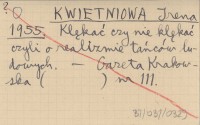 ?
KWIETNIOWA Irena
1955. Klękać czy nie klękać
czyli o realizmie tańców lu-
dowych. – Gazeta Krakow-
ska ( ) na III.